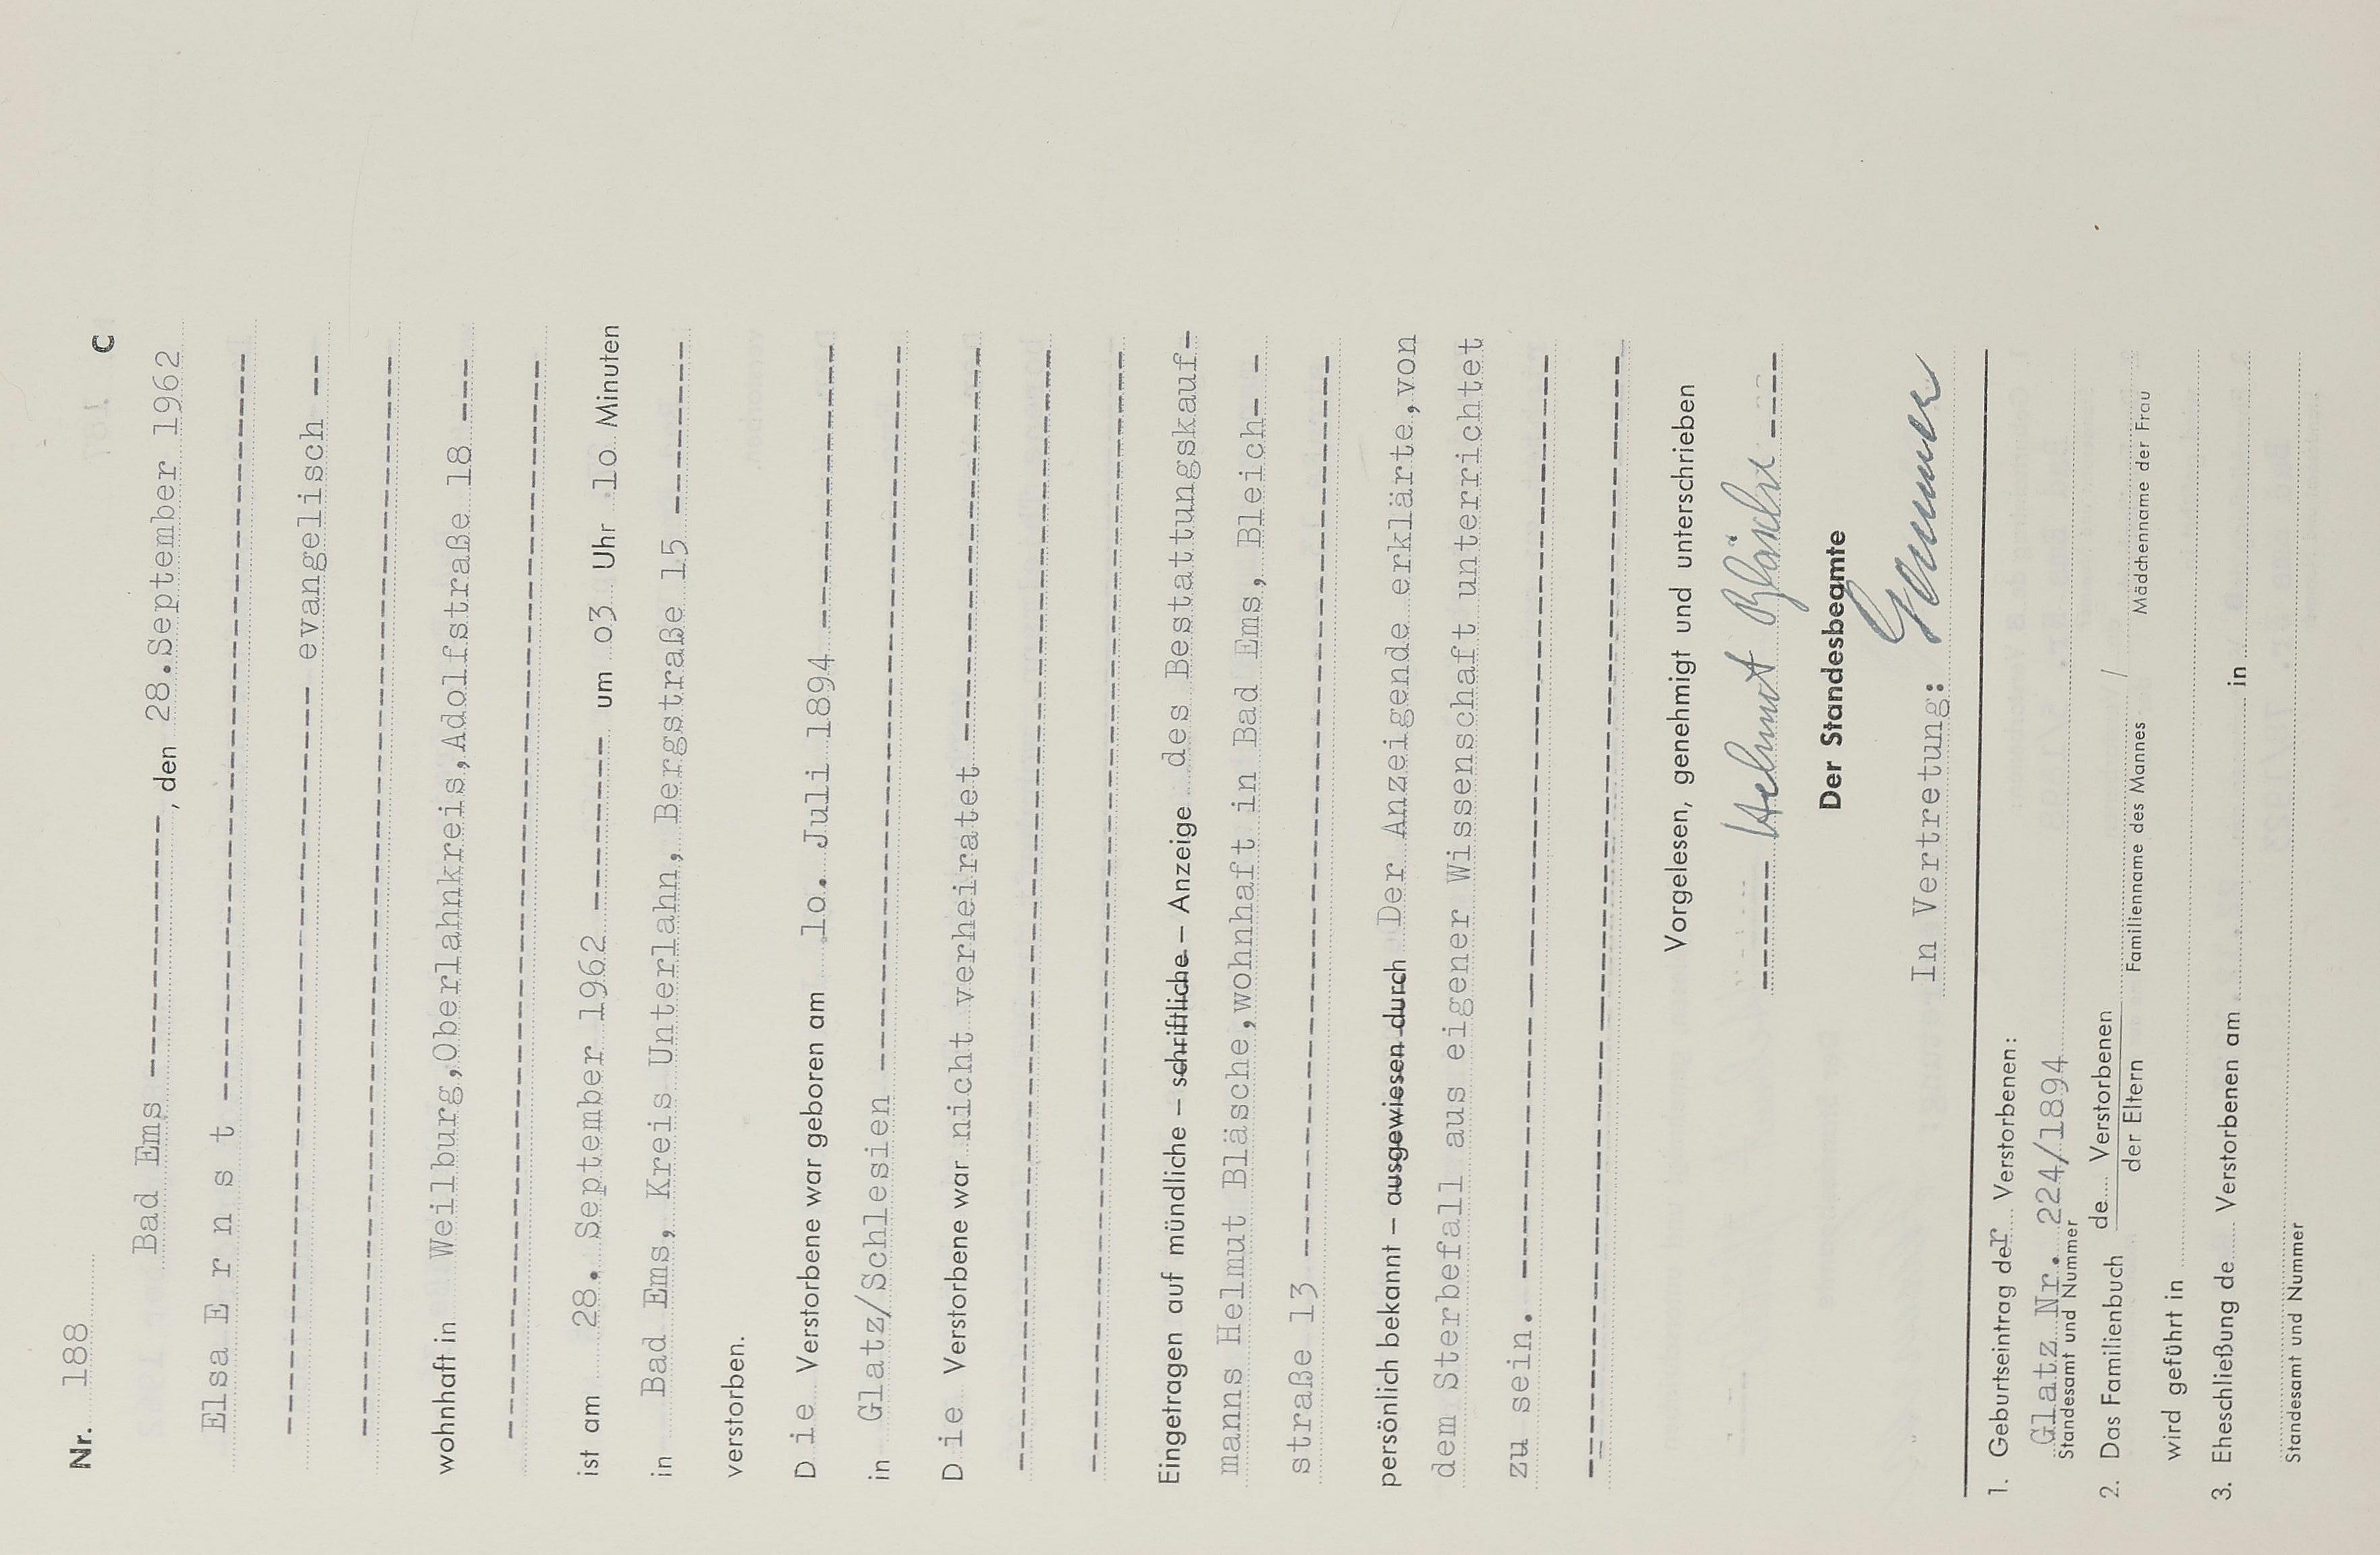 Nr. 188
C
Bad Ems ----------------, den 28.September 1962
Elsa E r n s t ----------------
---------------- evangelisch --
----------------
wohnhaft in Weilburg,Oberlahnkreis,Adolfstraße 18 ---
----------------
ist am 28. September 1962 --------- um 03 Uhr 10 Minuten
in Bad Ems, Kreis Unterlahn, Bergstraße 15 ---------
verstorben.
Die Verstorbene war geboren am 10. Juli 1894 ----------------
in Glatz/Schlesien ----------------
Die Verstorbene war nicht verheiratet ----------------
----------------
----------------
Eingetragen auf mündliche – schriftliche – Anzeige des Bestattungskauf-
manns Helmut Bläsche,wohnhaft in Bad Ems, Bleich- -
straße 13 ----------------
persönlich bekannt – ausgewiesen durch Der Anzeigende erklärte,von
dem Sterbefall aus eigener Wissenschaft unterrichtet
zu sein. ----------------
----------------
Vorgelesen, genehmigt und unterschrieben
------ Helmut Bläsche ----
Der Standesbeamte
In Vertretung:
1. Geburtseintrag der Verstorbenen:
Glatz Nr. 224/1894
Standesamt und Nummer
2. Das Familienbuch de Verstorbenen /
der Eltern Familienname des Mannes Mädchenname der Frau
wird geführt in
3. Eheschließung de Verstorbenen am in
Standesamt und Nummer